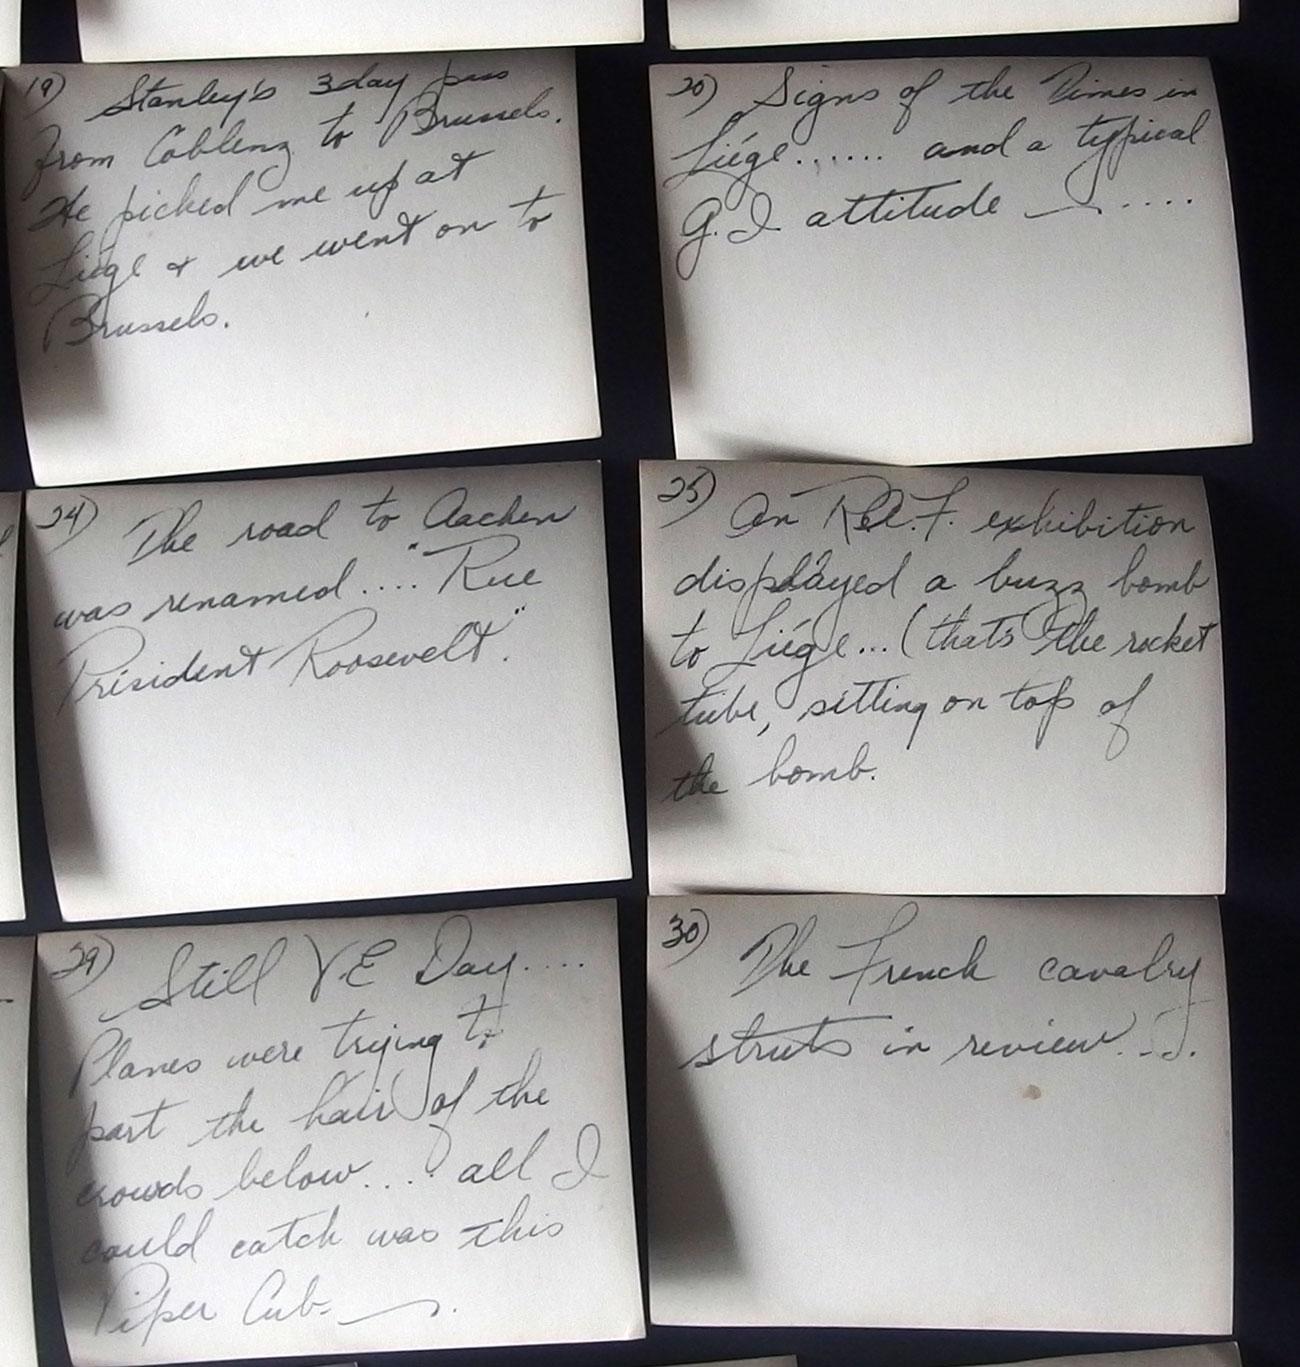 19) Stanley's 3 day pass
from Coblenz to Brussels.
He picked me up at
Liége & we went on to
Brussels.
20) Signs of the Times in
Liége...... and a typical
G.I attitude ....
24) The road to Aachen
was renamed.... "Rue
Président Roosevelt".
25) An R.A.F. exhibition
displayed a buzz bomb
to Liége... (that's the rocket
tube, sitting on top of
the bomb.
29) Still VE Day....
Planes were trying to
part the hair of the
crowds below.... all I
could catch was this
Piper Cub.
30) The French cavalry
struts in review...